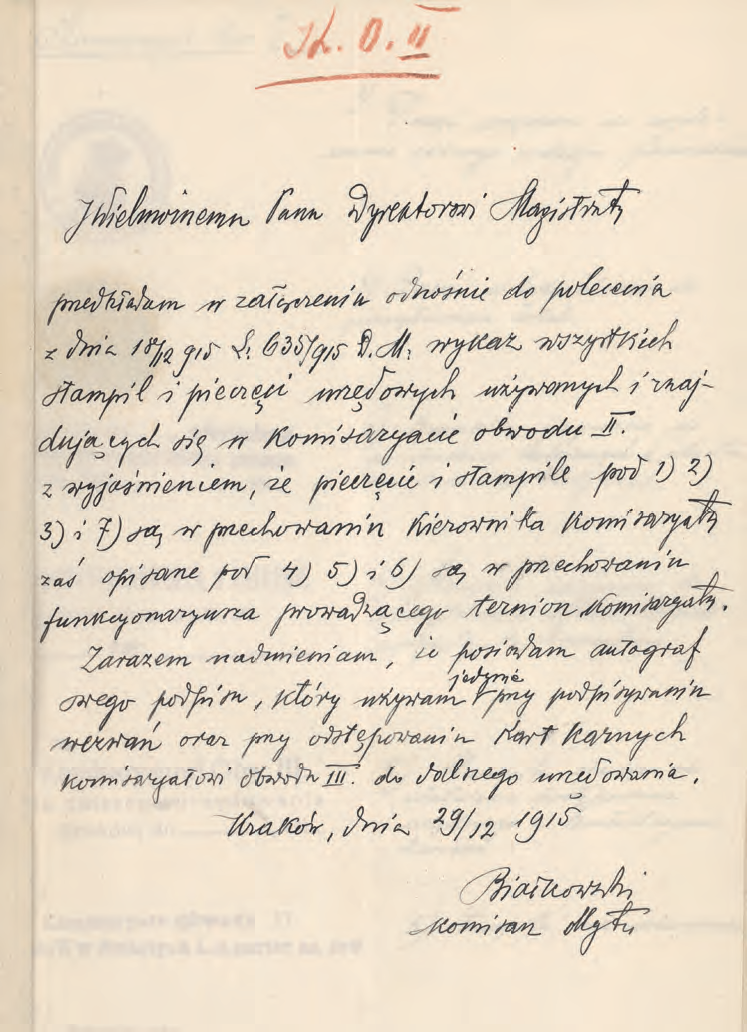 K. O. II
JWielmożnemu Panu Dyrektorowi Magistratu
przedkładam w załączeniu odnośnie do polecenia
z dnia 18/12 915 L: 635/915 D. M. wykaz wszystkich
stampil i pieczęci urzędowych używanych i znaj-
dujących się w Komisaryacie obwodu II.
z wyjaśnieniem, że pieczęcie i stampile pod 1) 2)
3) i 7) są w przechowaniu Kierownika Komisaryatu
zaś opisane pod 4) 5) i 6) są w przechowaniu
funkcyonaryusza prowadzącego Komisaryatu.
Zarazem nadmieniam, że posiadam autograf
swego podpisu, który używam jedynie przy podpisywaniu
wezwań oraz przy odstępowaniu Kart Karnych
Komisaryatowi obwodu III. do dalszego urzędowania.
Kraków, dnia 29/12 1915
Białkowski
Komisarz Mgtu